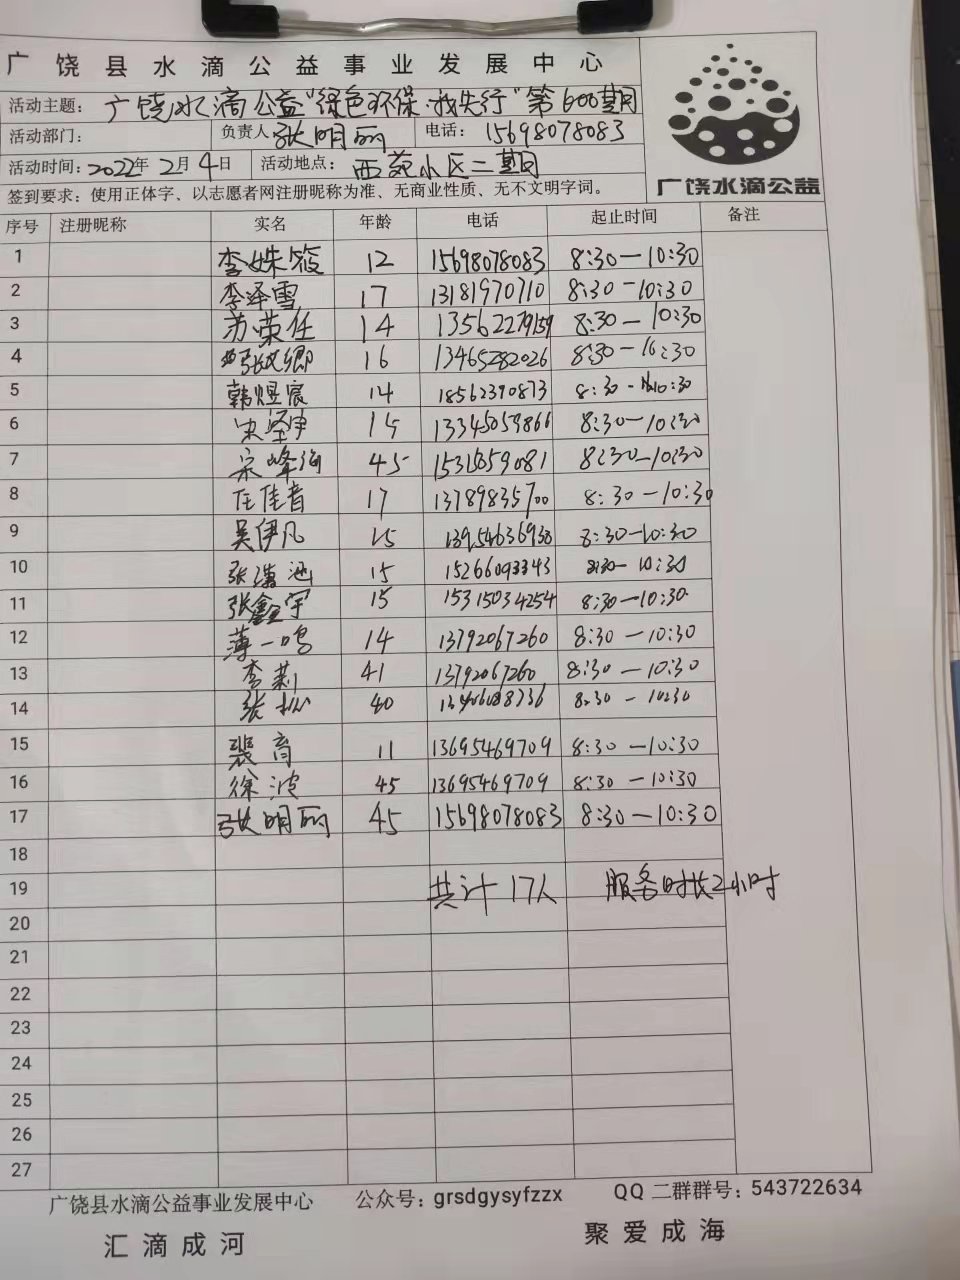 广饶县水滴公益事业发展中心
活动主题：广饶水滴公益"绿色环保·我先行"第600期
活动部门： 负责人 张明丽 电话：15698078083
活动时间：2022年2月4日 活动地点：西苑小区二期
广饶水滴公益
签到要求：使用正体字、以志愿者网注册昵称为准、无商业性质、无不文明字词。
序号 注册昵称 实名 年龄 电话 起止时间 备注
1 李姝筱 12 15698078083 8:30—10:30
2 李泽雪 17 13181970710 8:30-10:30
3 苏荣任 14 13562279159 8:30—10:30
4 16 13465282026 8:30-10:30
5 韩煜宸 14 18562390873 8:30-10:30
6 宋坚申 15 13345059866 8:30—10:30
7 宋峰海 45 15315059081 8:30—10:30
8 任佳音 17 13789835700 8:30—10:30
9 吴伊凡 15 13954636938 8:30—10:30
10 张潇涵 15 15266093343 8:30—10:30
11 张鑫宇 15 15315034254 8:30—10:30
12 薄一鸣 14 13792067260 8:30—10:30
13 李莉 41 13792067260 8:30—10:30
14 张松 40 13406088736 8:30-10:30
15 裴育 11 13695469709 8:30—10:30
16 徐波 45 13695469709 8:30—10:30
17 张明丽 45 15698078083 8:30—10:30
18
19 共计17人 服务时长2小时
20
21
22
23
24
25
26
27
广饶县水滴公益事业发展中心 公众号：grsdgysyfzzx QQ二群群号：543722634
汇滴成河 聚爱成海